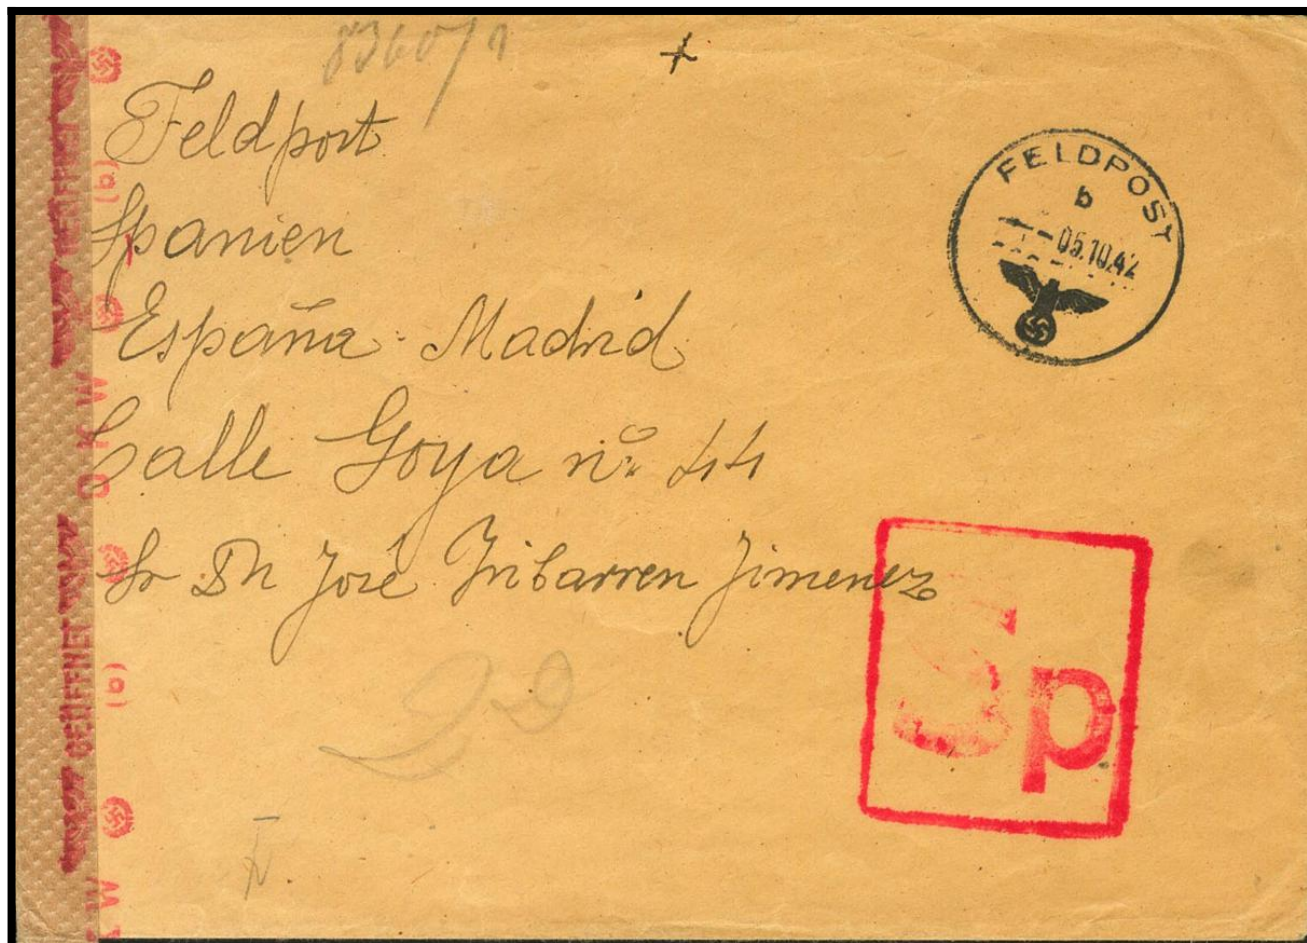 8360/1
+
Feldpost
Spanien
España. Madrid
Calle Goya nº 44
Sr Dn José Iribarren Jimenez
FELDPOST
b
-05.10.42
Sp
GEÖFFNET
(b)
OKW
GEÖFFNET
(b)